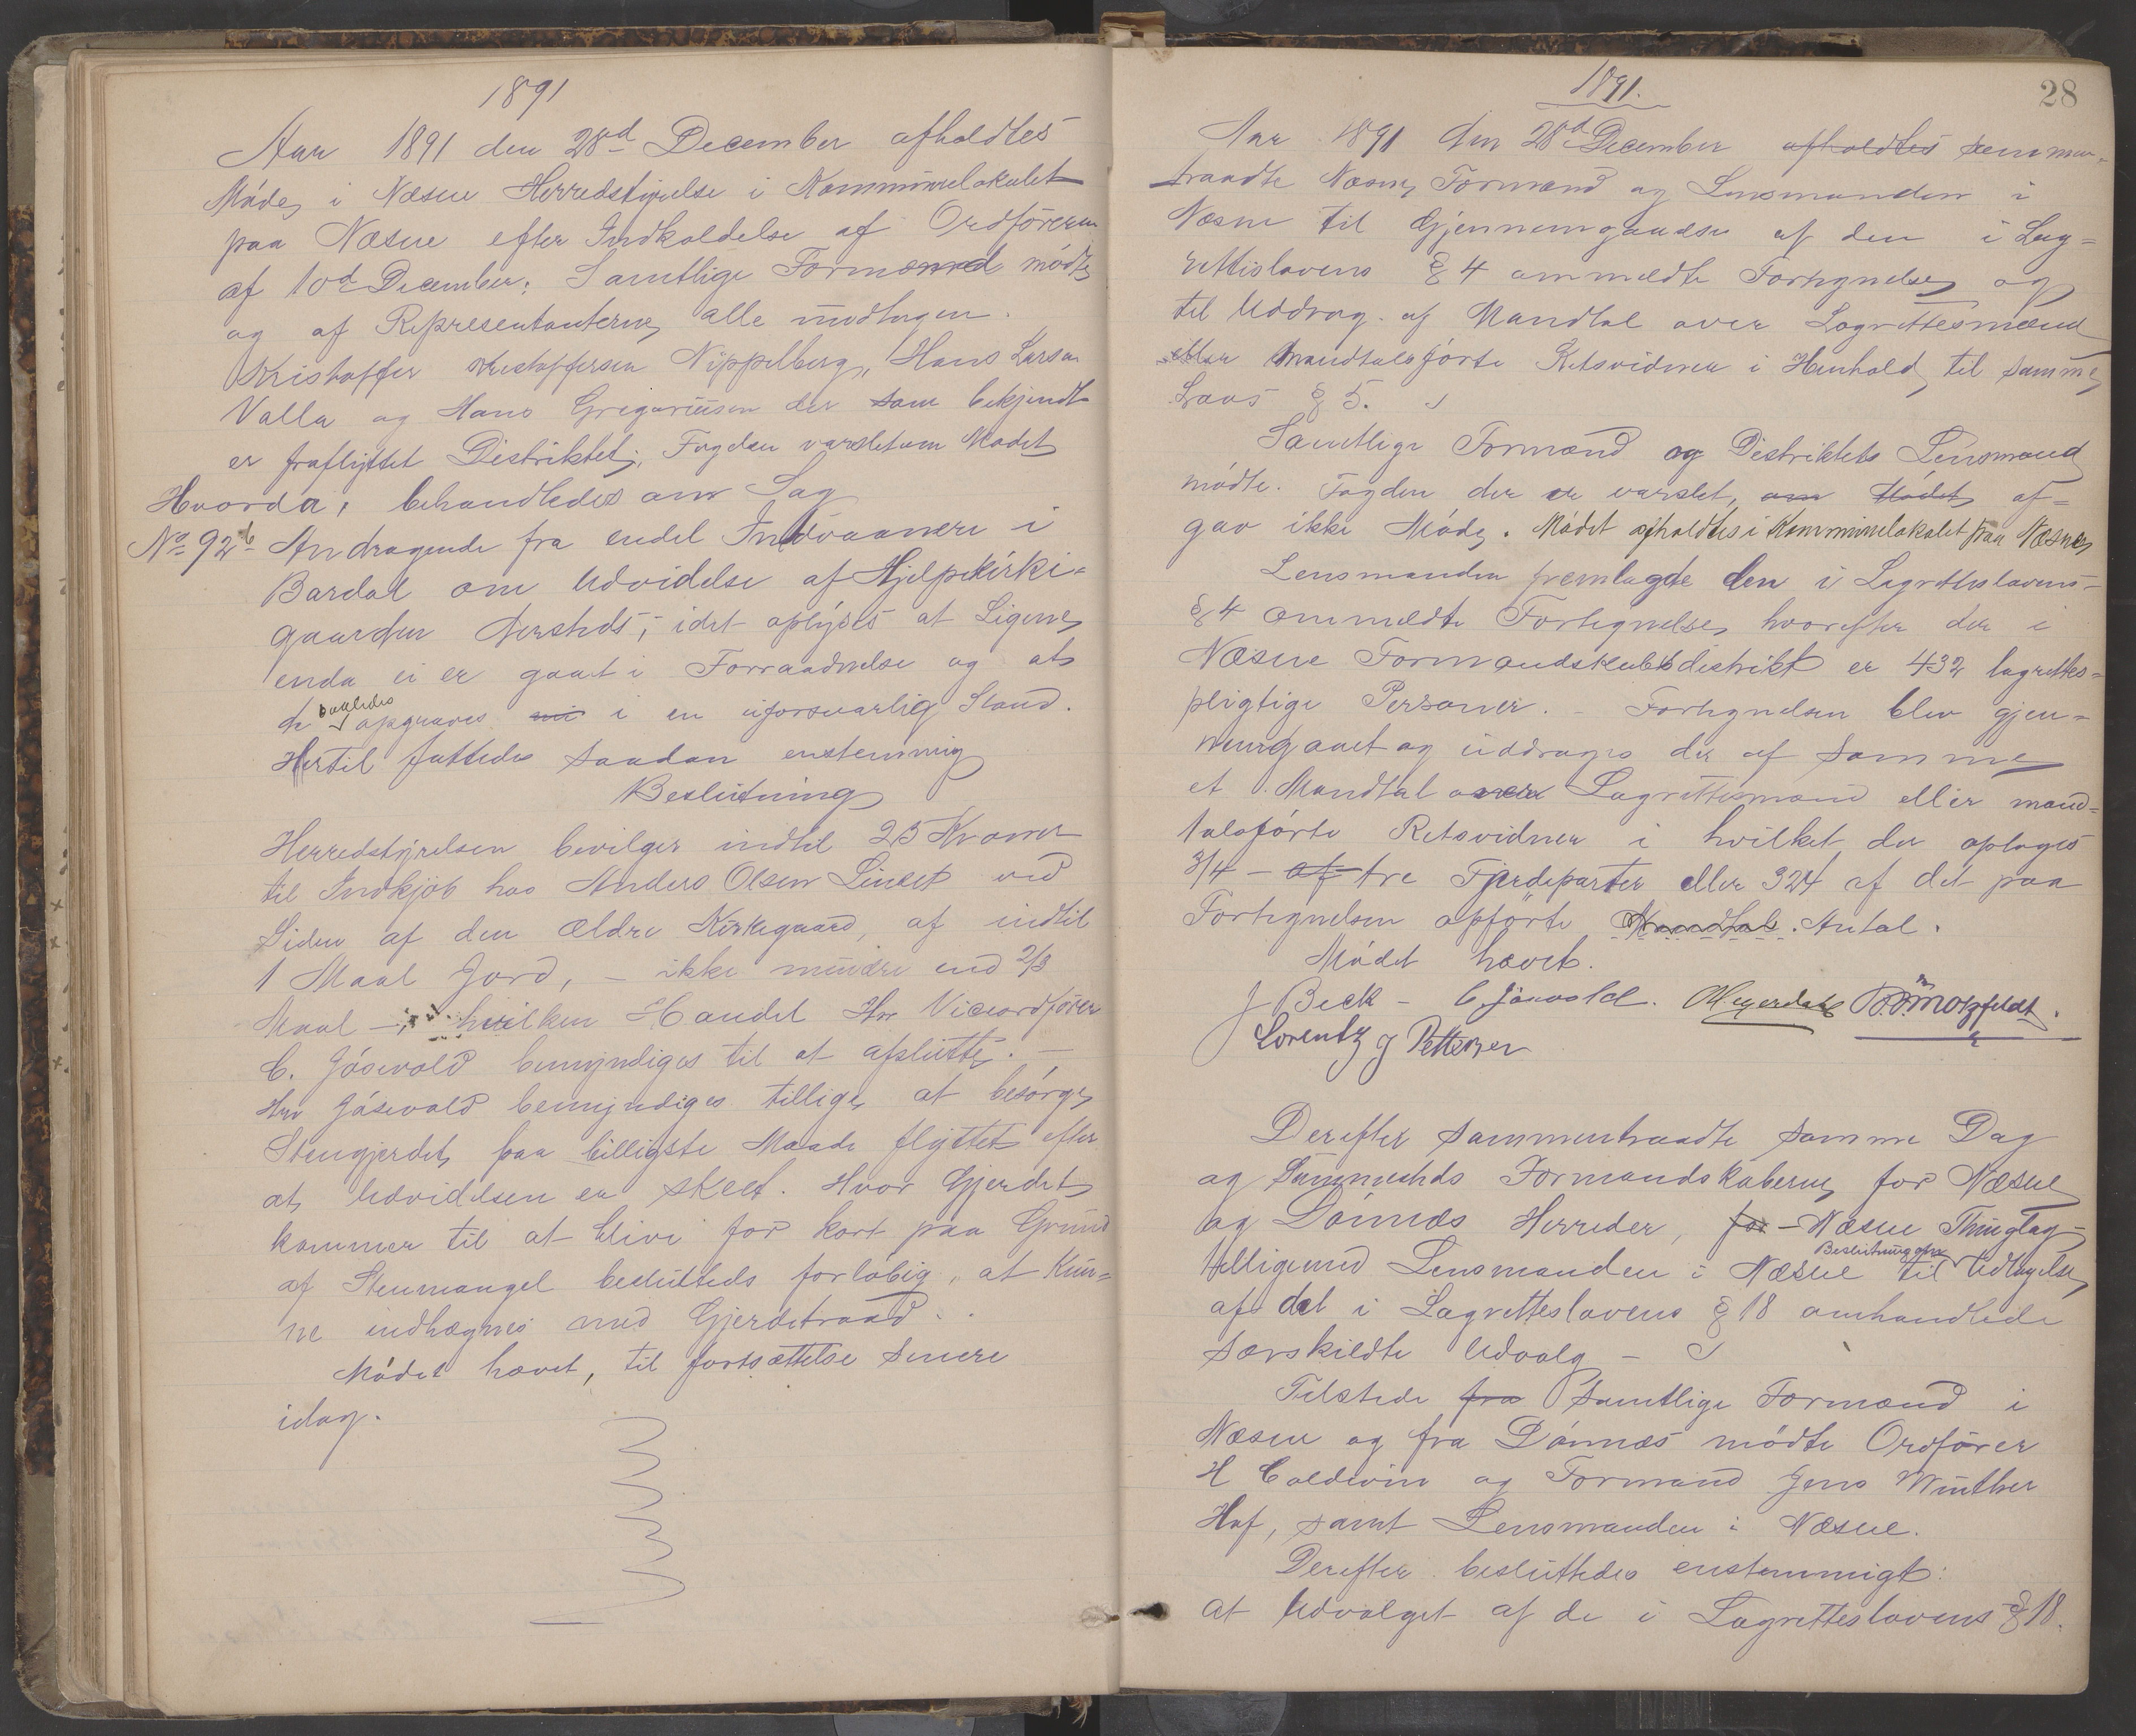 1891
Aar 1891 den 28d December afholdtes
Møde i Næsne Herredstyrelse i Kommunelokalet
paa Næsne efter Indkaldelse af Ordføreren
af 10d December. Samtlige Formænd mødte
og af Representanterne alle undtagen
Kristoffer Kristoffersen Nippelberg, Hans Larsen
Valla og Hans Gregoriusen der som bekjendt
er fraflyttet Distriktet; Fogden varslet om Mødet
Hvorda, behandledes som Sag
No 92b Andragende fra endel Indvaanere i
Bardal om Udvidelse af Hjelpekirke-
gaarden dersteds; idet oplyses at Ligene
enda ei er gaaet i Forraadnelse og at
de saaledes opgraves i en uforsvarlig Stand.
Hertil fattedes saadan enstemmig
Beslutning
Herredstyrelsen bevilger indtil 25 Kroner
til Indkjøb hos Anders Olsen ved
Siden af den ældre Kirkegaard, af indtil
1 Maal Jord, - ikke mindre end 2/3
Maal - hvilken Handel Hr Viceordfører
C. Jøsevold bemyndiges til at afslutte. -
Hr Jøsevold bemyndiges tillige at besørge
Stengjerdet paa billigste Maade flyttet efter
at Udvidelsen er skeet. Hvor Gjerdet
kommer til at blive for kort paa Grund
af Stenmangel besluttedes forløbig, at kun-
ne indhægnes med Gjerdetraad.
Mødet hævet, til fortsættelse senere
idag.
1891. 28
Aar 1891 den 28d December afholdtes sammen-
traadte Næsne Formænd og Lensmanden i
Næsne til Gjennemgaaelse af den i Lag-
rettislovens § 4 ommeldte Fortegnelse og
til Uddrag af Mandtal over Lagrettesmænd
eller mandtalsførte Retsvidner i Henhold til samme
Lovs § 5.
Samtlige Formænd og Distriktets Lensmand
mødte. Fogden der er varslet, om Mødet af-
gav ikke Møde. Mødet afholdtes i Kommunelokalet paa Næsne
Lensmanden fremlagde den i Lagretteslovens
§ 4 ommeldte Fortegnelse, hvorefter der i
Næsne Formandskabsdistrikt er 432 lagrettes-
pligtige Personer. - Fortegnelsen blev gjen-
nemgaaet og uddrages der af samme
et Mandtal over Lagrettesmænd eller mand-
talsførte Retsvidner i hvilket der optages
3/4 - af tre Fjerdeparter eller 324 af det paa
Fortegnelsen opførte Mandtal. Antal.
Mødet hævet.
J Beck - C. Jøsevold. OMeyerdahl Motzfeldt.
Lorentz J Pettersen
Derefter sammentraadte samme Dag
og Sammesteds Formandskaberne for Næsne
og Dønnæs Herreder, for - Næsne Thinglag -
tilligemed Lensmanden i Næsne til Beslutning om Udtagelse
af det i Lagretteslovens § 18 omhandlede
særskildte Udvalg -
Tilstede fra Samtlige Formænd i
Næsne og fra Dønnæs mødte Ordfører
H Coldevin og Formand Jens Winther
Hof, samt Lensmanden i Næsne.
Derefter besluttedes enstemmigt:
at Udvalget af de i Lagretteslovens § 18.